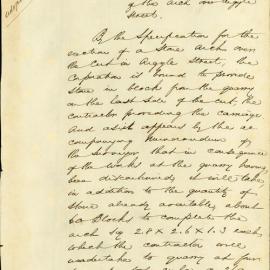 of the arch over Argyle
Street.
By the Specification for the
erection of a Stone Arch over
the Cut in Argyle Street, the
Corporation is bound to provide
stone in block from the quarry
on the last side of the cut, the
contractor providing the carriage
And as it appears by the ac
companying Memorandum of
the Surveyor that in consequence
of the works at the quarry having
been discontinued, it will take
in addition to the quantity of
stone already available, about
60 Blocks to complete the
arch say 2.8 x 2.6 x 1.3 each
which the contractor will
undertake to quarry at